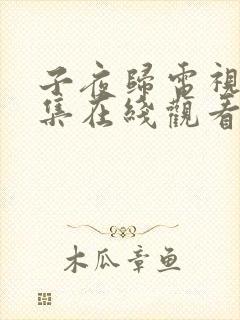 子夜歸電視
集在綫觀看
木瓜章鱼